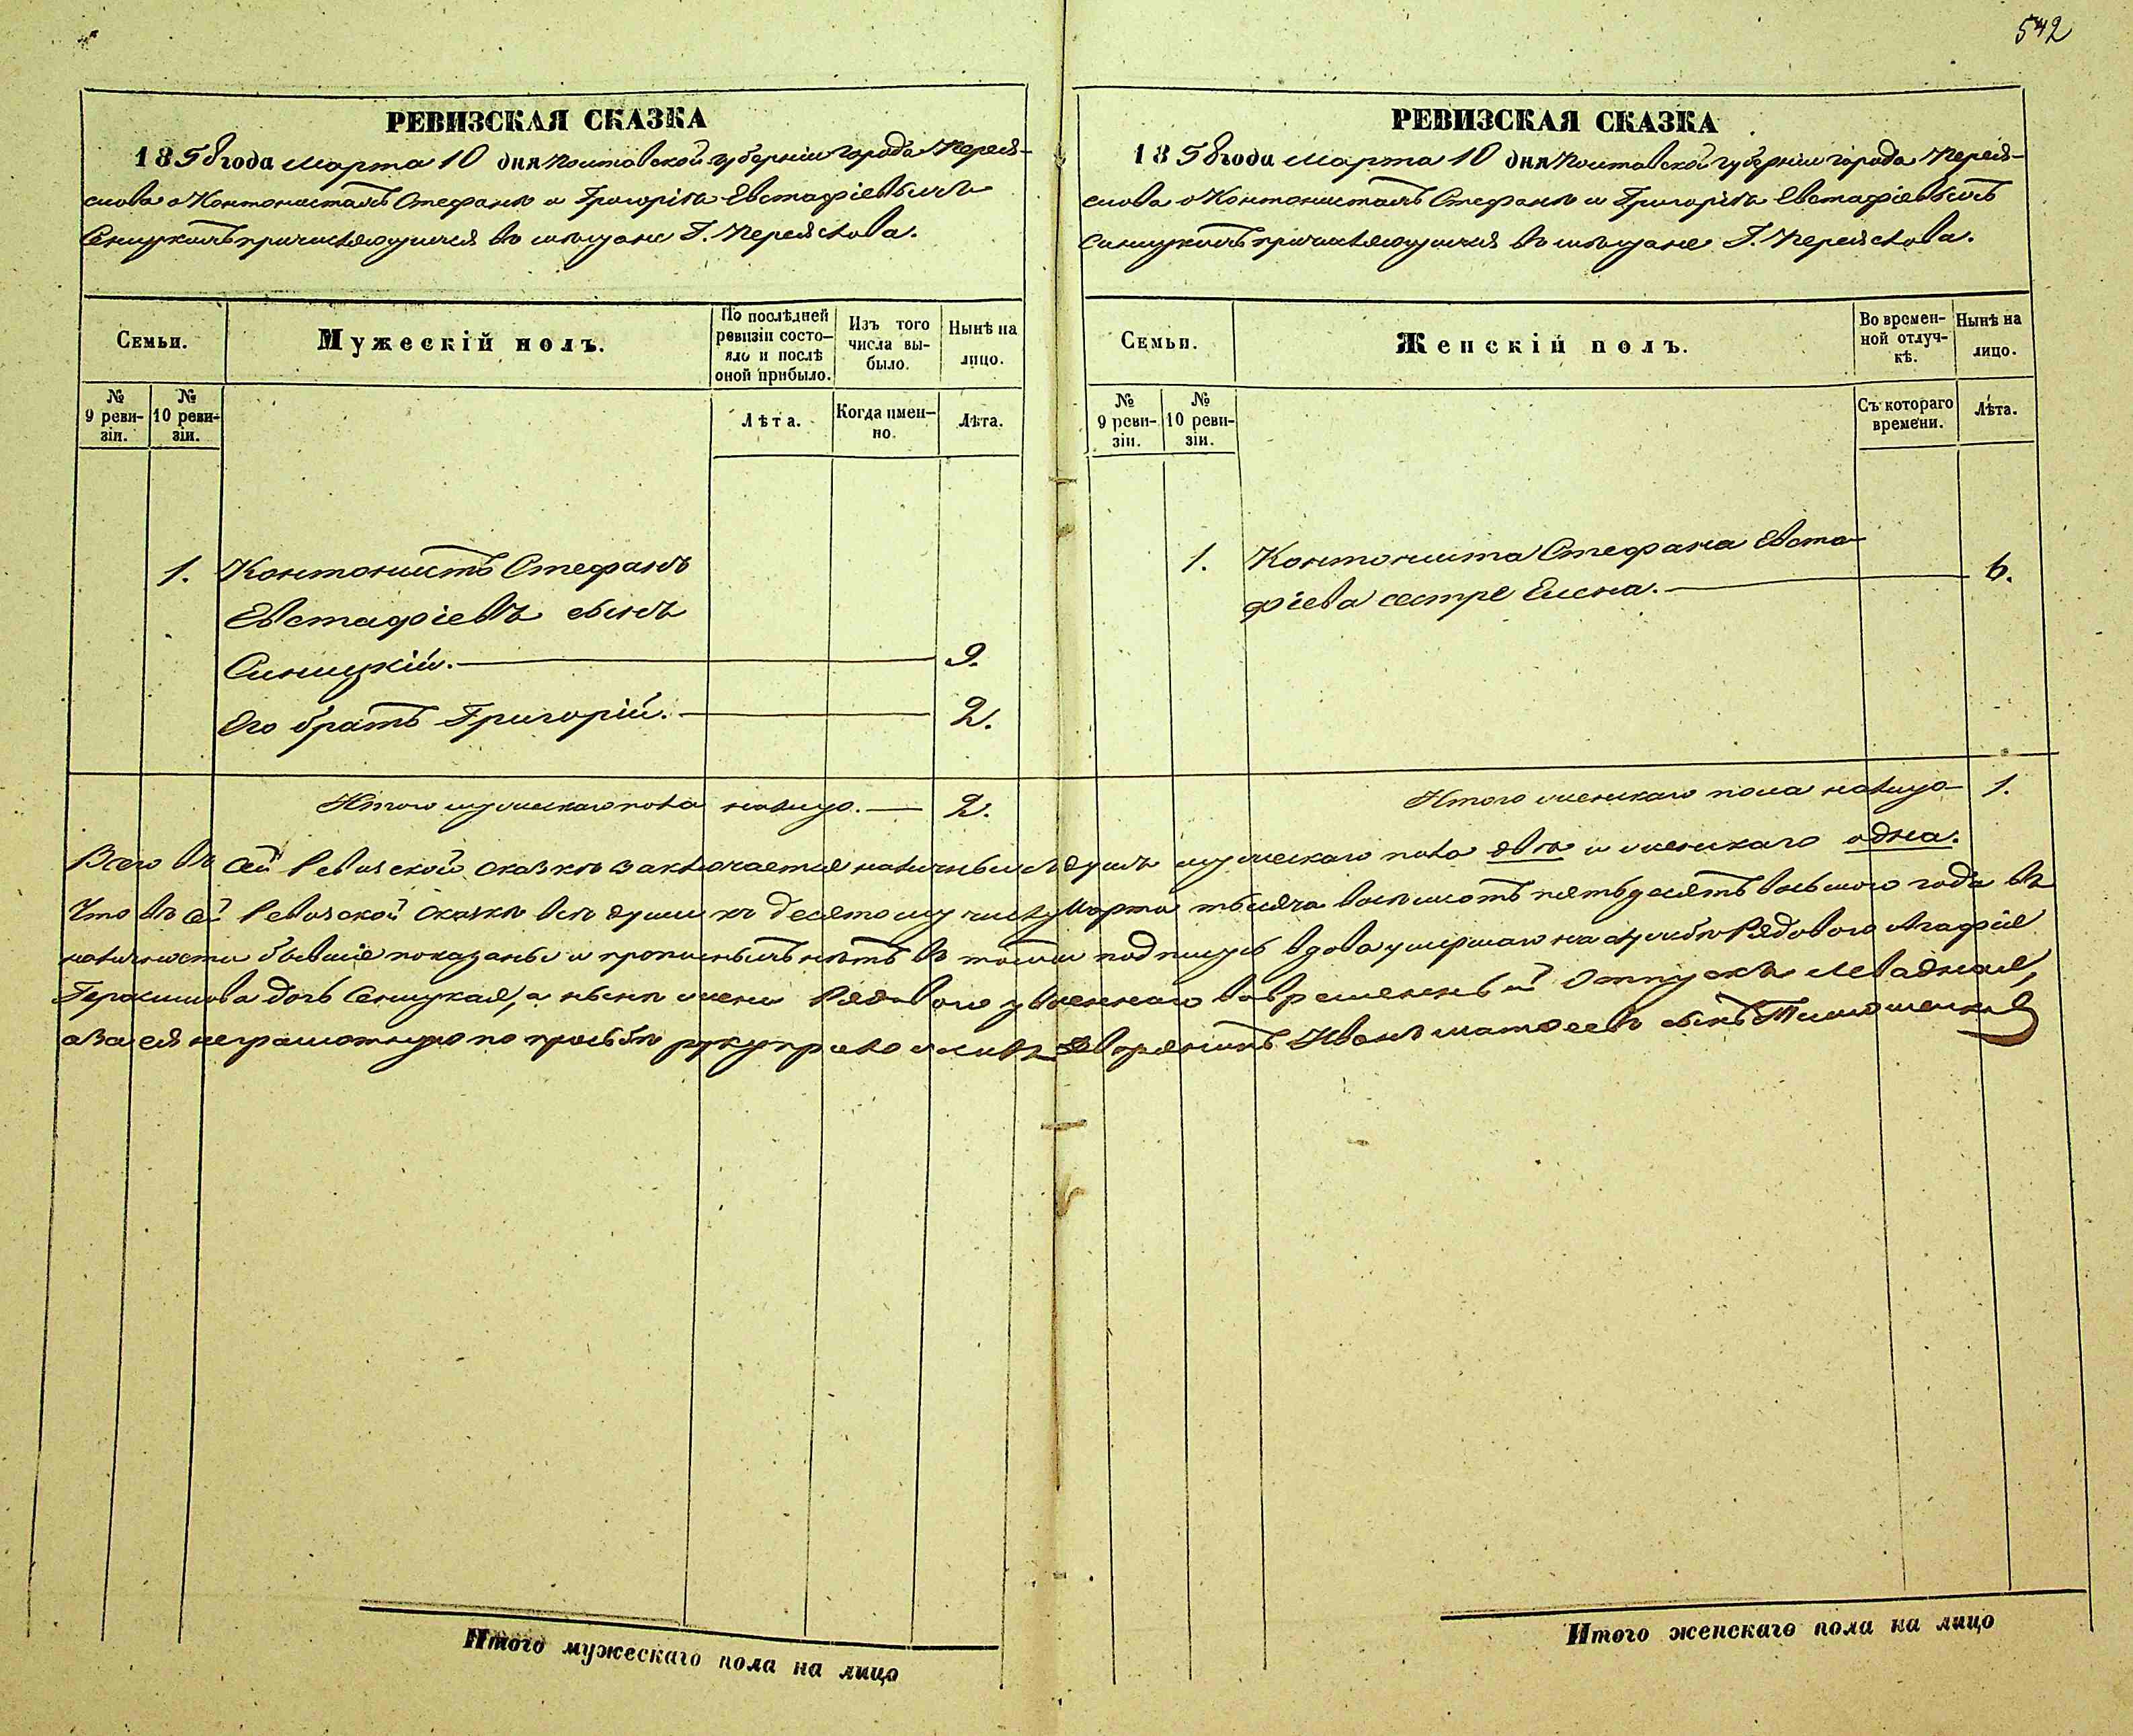 542
РЕВИЗСКАЯ СКАЗКА
1858 года марта 10 дня Полтавской губерніи города Перея-
слова о Кантонистахъ Стефанѣ и Григоріѣ Евстафіевыхъ
Сеницкихъ причисляющихся въ мѣщане Г. Переяслова.
Семьи.
Мужескій полъ.
По послѣдней ревизіи состо-яло и послѣ оной прибыло.
Изъ того числа вы-было.
Нынѣ на лицо.
№ 9 реви-зіи.
№ 10 реви-зіи.
Лѣта.
Когда имен-но.
Лѣта.
1. Кантонистъ Стефанъ
Евстафіевъ сынъ
Синицкій. 9.
Его братъ Григорій. 2.
Итого мужескаго пола налицо. 2.
РЕВИЗСКАЯ СКАЗКА
1858 года марта 10 дня Полтавской губерніи города Перея-
слова о Кантонистахъ Стефанѣ и Григоріѣ Евстафіевыхъ
Синицкихъ причисляющихся въ мѣщане Г. Переяслова.
Семьи.
Женскій полъ.
Во времен-ной отлуч-кѣ.
Нынѣ на лицо.
№ 9 реви-зіи.
№ 10 реви-зіи.
Съ котораго времени.
Лѣта.
1. Кантониста Стефана Евста-
фіева сестра Елена. 6.
Итого женскаго пола налицо 1.
Всего въ сей Ревизской сказкѣ заключается наличныхъ душъ мужескаго пола двѣ и женскаго одна.
Что въ сей Ревизской сказкѣ всѣ души къ десятому числу Марта тысяча восемсотъ пятьдесятъ восьмого года въ
наличности бывшіе показаны и прописныхъ нѣтъ въ томъ подпишусь вдова умершаго на службѣ Рядового Агафія
Герасимова дочь Сеницкая, а нынѣ жена Рядового уволеннаго вовременный Отпускъ Левадная,
а за ея неграмотную по просьбѣ руку приложилъ дворянинъ Иванъ Матвеевъ сынъ
Итого мужескаго пола на лицо
Итого женскаго пола на лицо